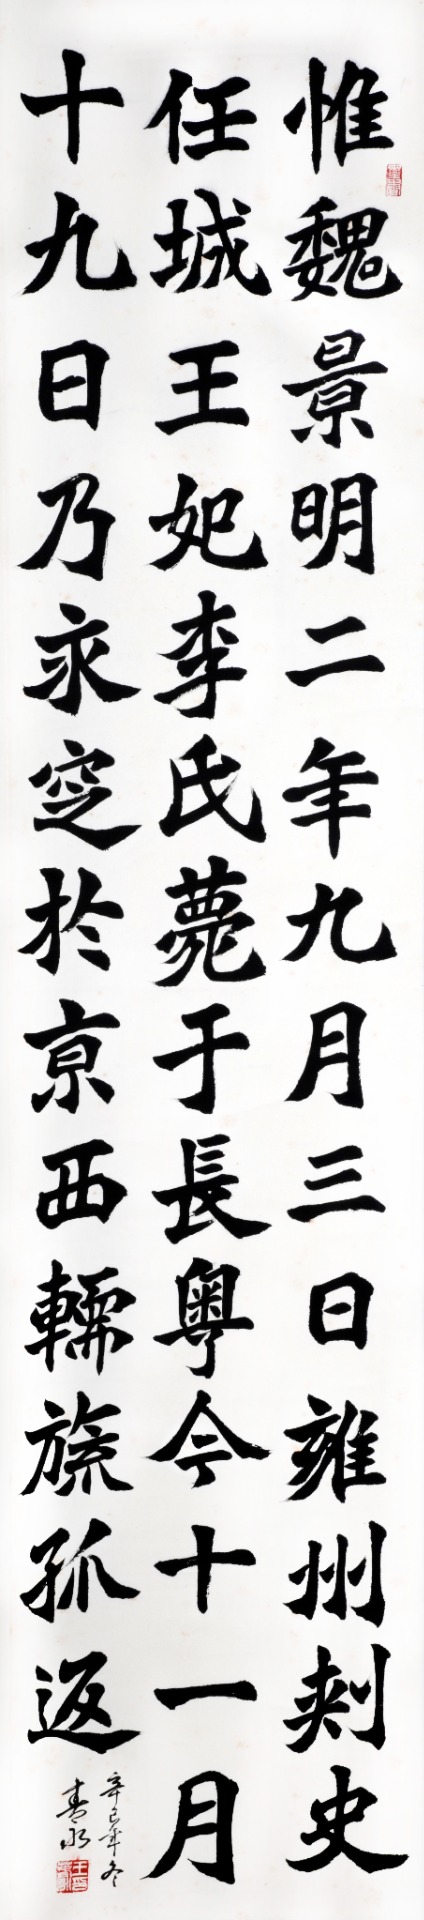 惟魏景明二年九月三日雍州刾史
任城王妃李氏薨于長粤今十一月
十九日乃永窆於京西轜旒孤返
辛巳年冬